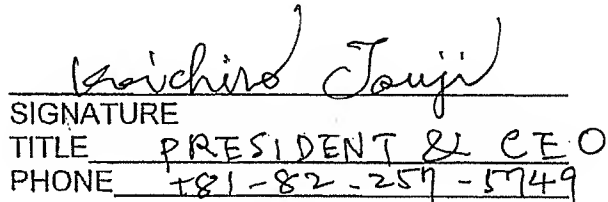 Koichiro Touji
SIGNATURE
TITLE PRESIDENT & CEO
PHONE +81-82-257-5749